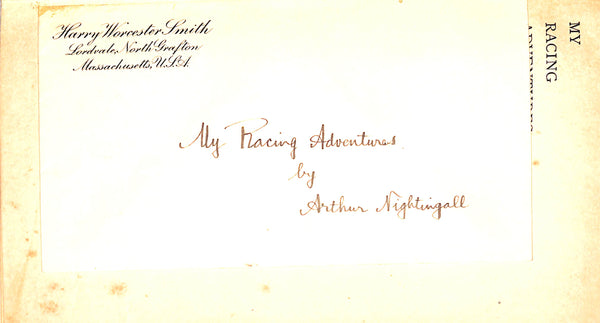 Harry Worcester Smith
Lordvale, North Grafton
Massachusetts, U.S.A.
My Racing Adventures
by
Arthur Nightingall
MY
RACING